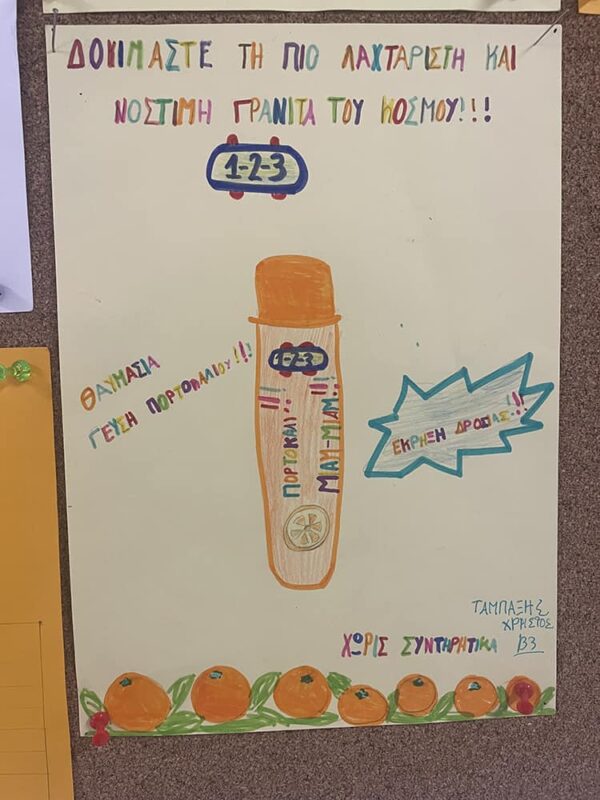 ΔΟΚΙΜΑΣΤΕ ΤΗ ΠΙΟ ΛΑΧΤΑΡΙΣΤΗ ΚΑΙ
ΝΟΣΤΙΜΗ ΓΡΑΝΙΤΑ ΤΟΥ ΚΟΣΜΟΥ!!!
1-2-3
1-2-3
ΘΑΥΜΑΣΙΑ
ΓΕΥΣΗ ΠΟΡΤΟΚΑΛΙΟΥ!!!
ΠΟΡΤΟΚΑΛΙ!!!
ΜΙΑΜ-ΜΙΑΜ!!!
ΕΚΡΗΞΗ ΔΡΟΣΙΑΣ!!!
ΤΑΜΠΑΞΗΣ
ΧΡΗΣΤΟΣ
Β3
ΧΩΡΙΣ ΣΥΝΤΗΡΗΤΙΚΑ